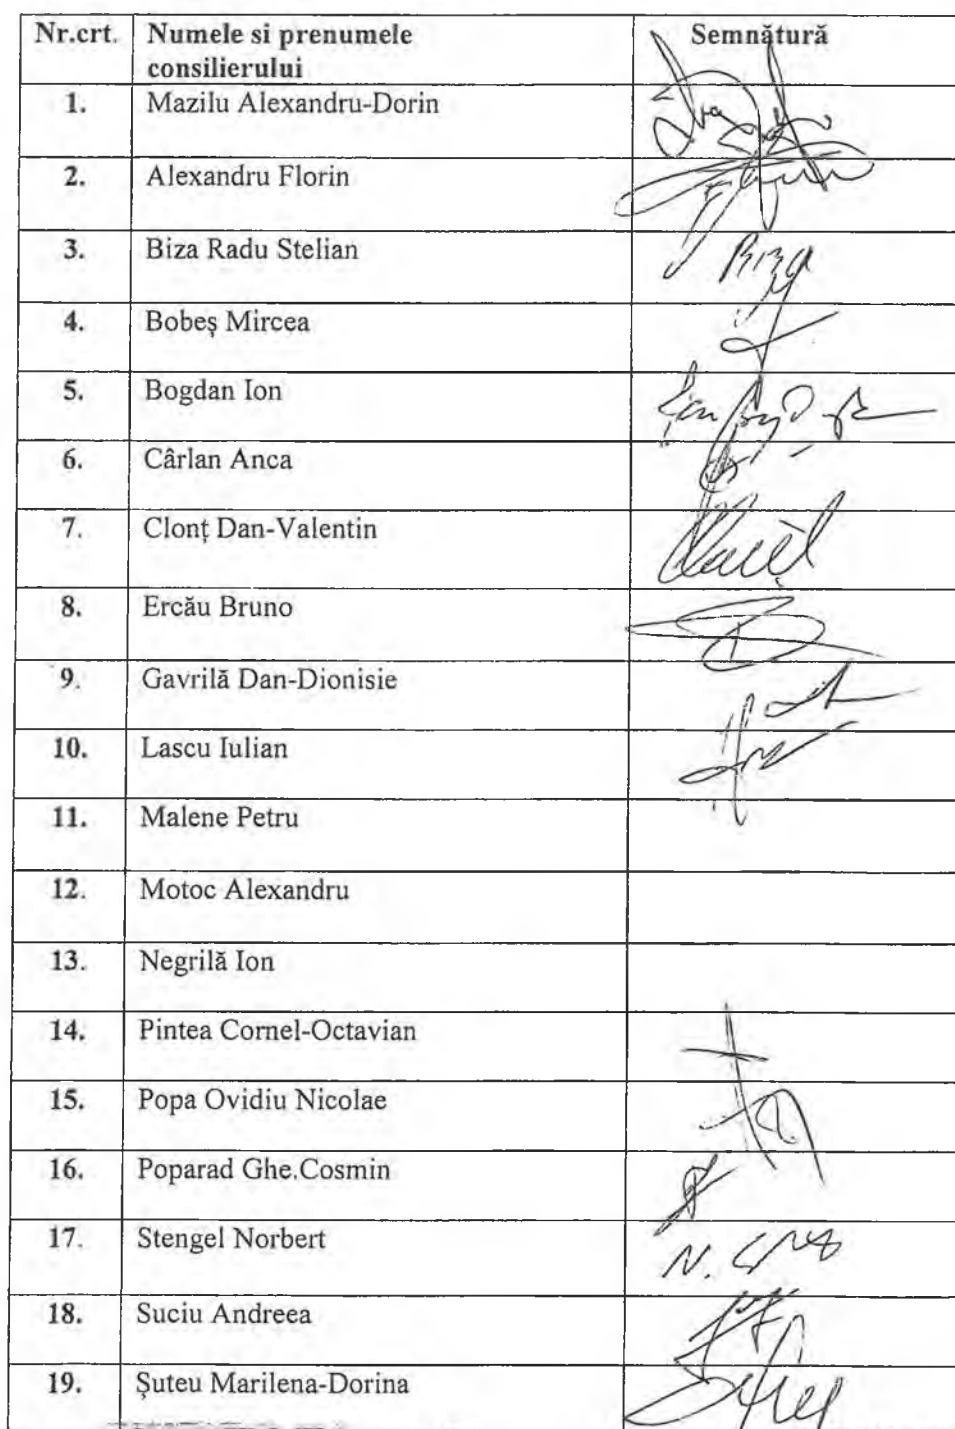 Nr.crt. Numele si prenumele Semnătură
consilierului
1. Mazilu Alexandru-Dorin
2. Alexandru Florin
3. Biza Radu Stelian Biza
4. Bobeș Mircea
5. Bogdan Ion
6. Cârlan Anca
7. Clonț Dan-Valentin
8. Ercău Bruno
9. Gavrilă Dan-Dionisie
10. Lascu Iulian
11. Malene Petru
12. Motoc Alexandru
13. Negrilă Ion
14. Pintea Cornel-Octavian
15. Popa Ovidiu Nicolae
16. Poparad Ghe.Cosmin
17. Stengel Norbert N.
18. Suciu Andreea
19. Șuteu Marilena-Dorina